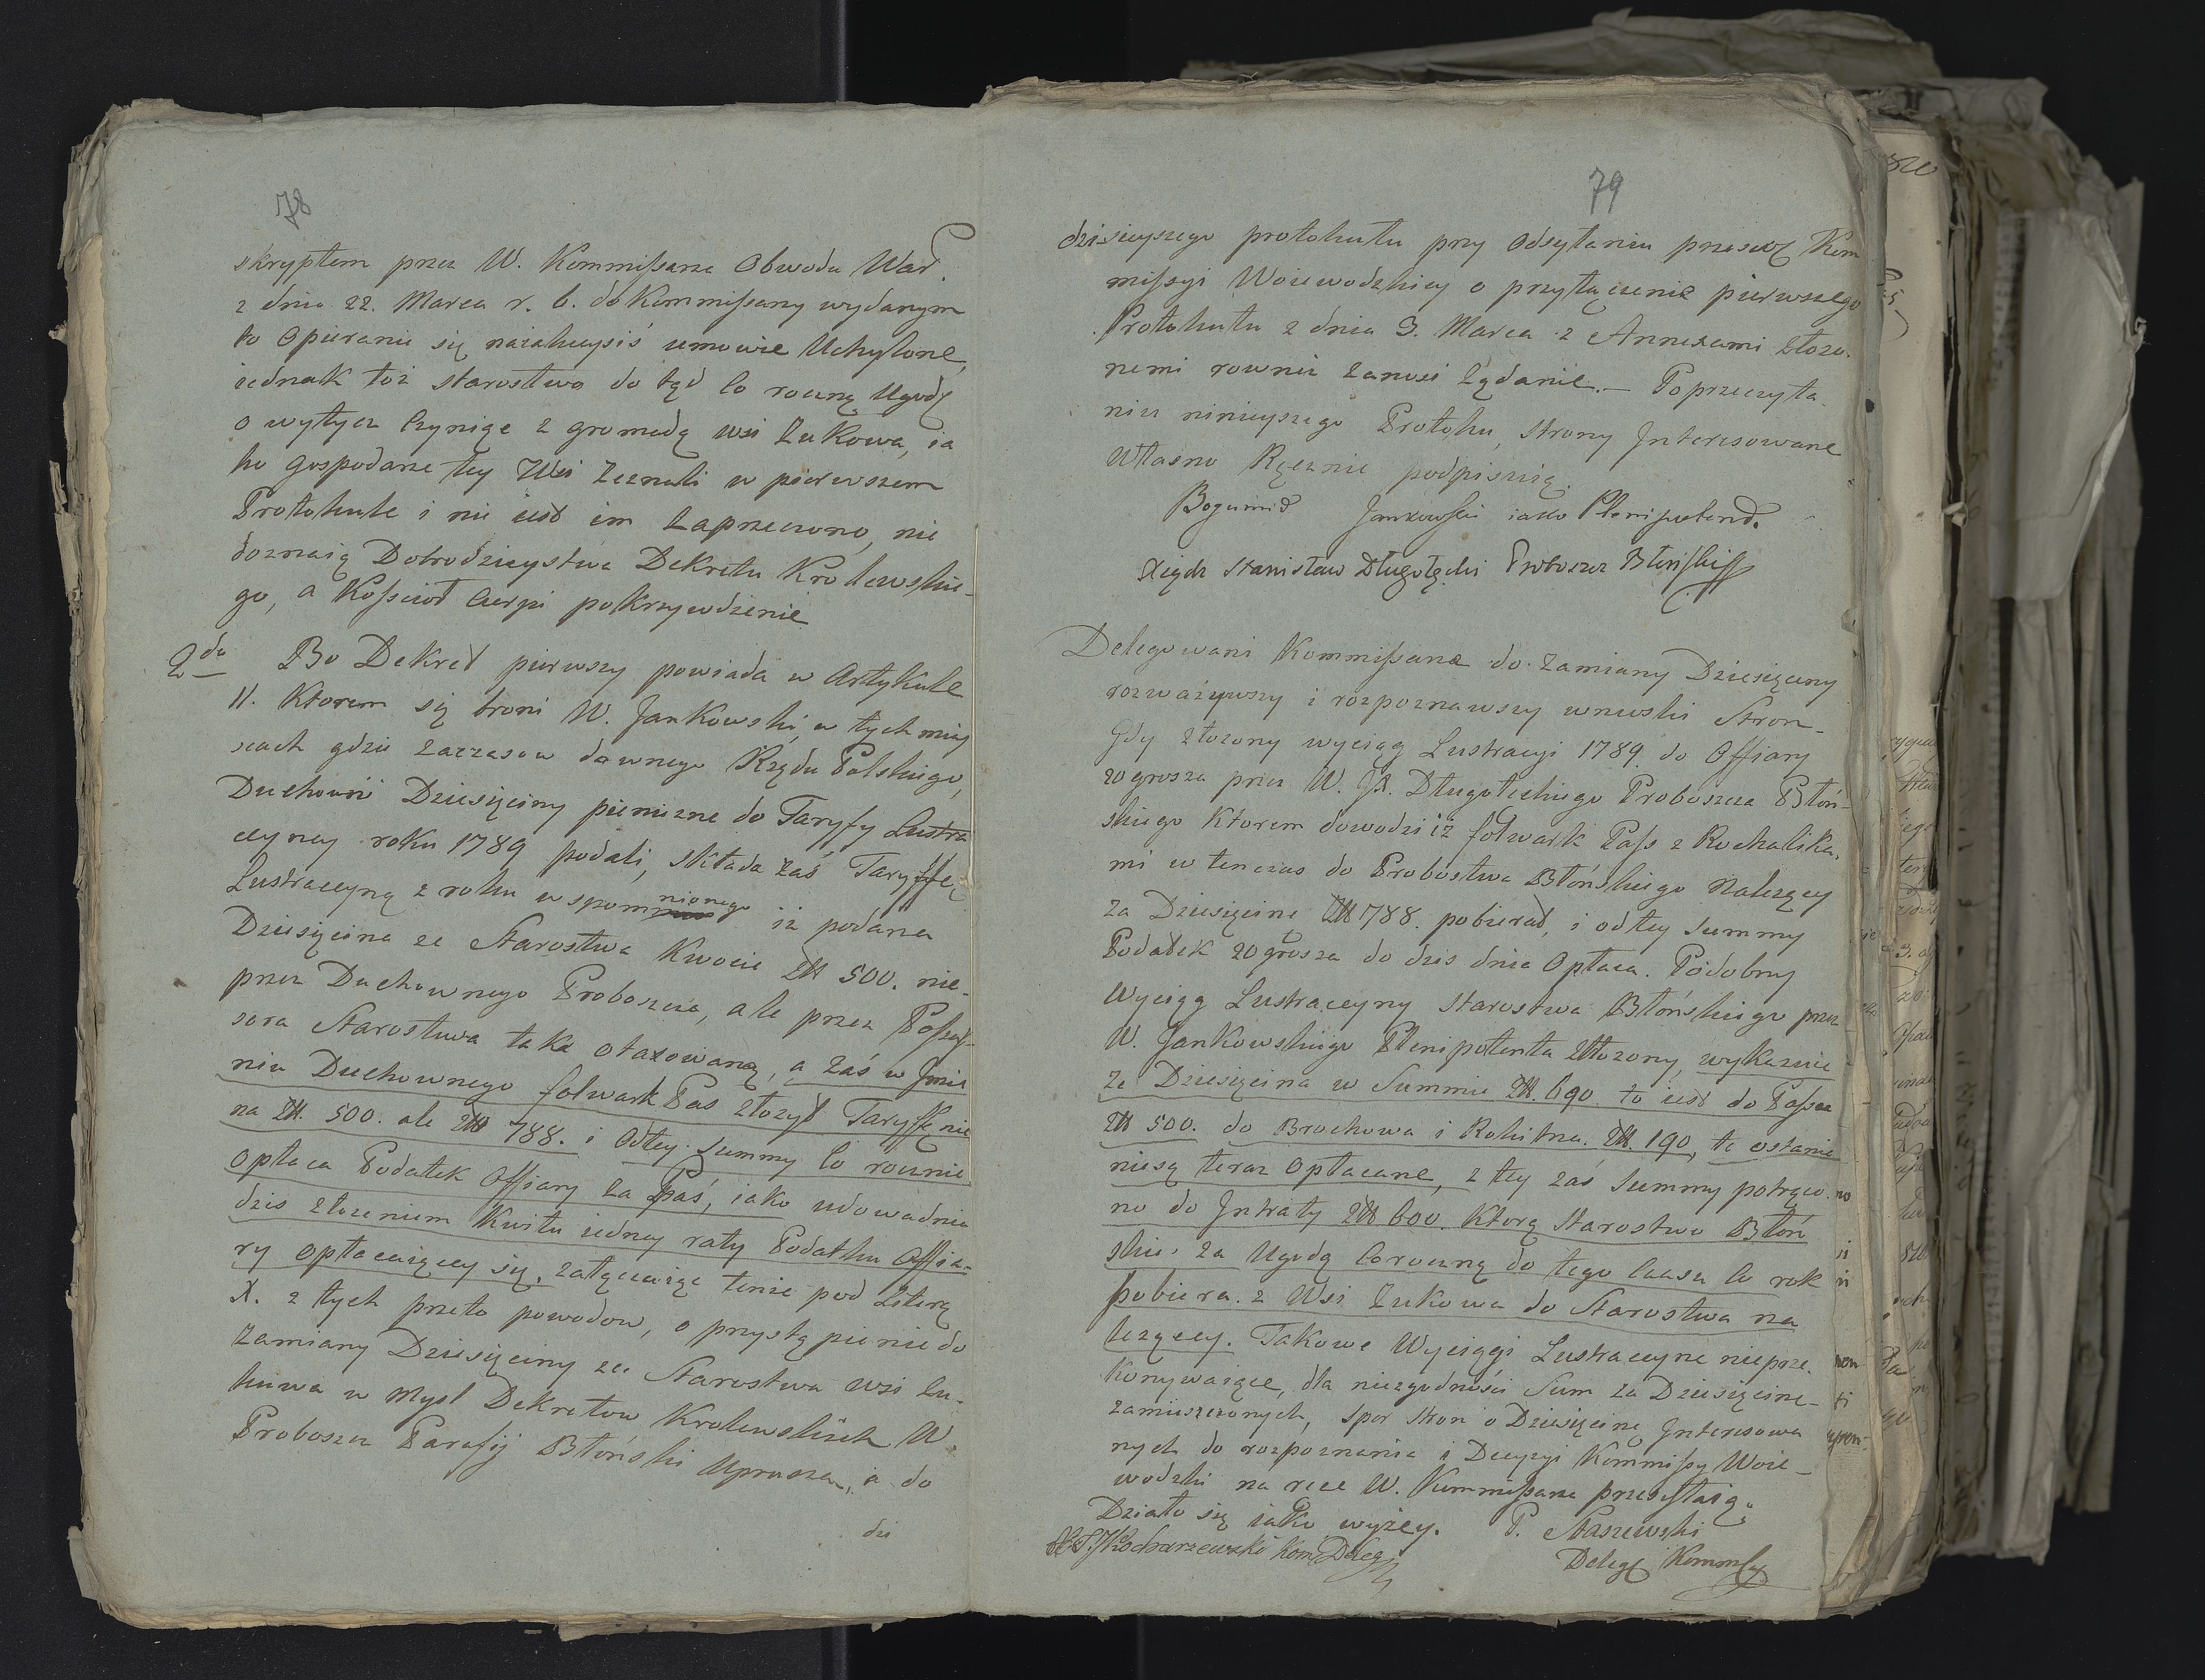 78
skryptem przez W. Kommißarza Obwodu War.
z dnia 22. Marca r. b. do Kommißarzy wydanym
to Opieranie się na umowie Uchylone,
iednak toż starostwo do tąd Co roczną Ugodę
o wytycz Czyniąc z gromadą wsi Żukowa, ia
ko gospodarze tey Wsi Zeznali w pierwszem
Protokule i nie iest im Zaprzeczono, nie
doznaią Dobrodzieystwa Dekretu Krolewskie-
go, a Koßcioł Cierpi pokrzywdzenie
2do Bo Dekret pierwszy powiada w Artykule
11. Ktorem się broni W. Jankowski, w tych miey
scach gdzie Zaczasow dawnego Rządu Polskiego,
Duchowni Dziesięciny pienizne do Taryfy Lustra
cyiney roku 1789 podali, składa zaś Taryffę
Lustraccyiną z roku wspomnionego iż podana
Dziesięcina ze Starostwa Kwocie Zll 500. nie-
przez Duchownego Proboszcza, ale przez Poßeß-
sora Starostwa tak otaxowaną, a Zaś w Imie
niu Duchownego folwark Pas złozył Taryffę nie
na Zll. 500. ale Zll 788. i Odtey Summy Co rocznie
opłaca Podatek Offiary za Paś, iako udowadnia
dzis złozeniem Kwitu iedney raty Podatku Offia-
ry opłacaiącey się, załączaiąc tenże pod Literą
X. z tych przeto powodow, o przystąpienie do
Zamiany Dziesięciny ze Starostwa wsi Żu-
kowa w Mysl Dekretow Krolewskich W.
Proboszcz Parafij Błoński Uprasza, a do
dzi
79
dzisieyszego protokułu przy Odsyłaniu przeseł Kom
mißyi Woiewodzkiey o przyłączenie pierwszego
Protokułu z dnia 3. Marca z Annexami złozo-
nemi rownie Zanosi Żądanie. — Poprzeczyta-
niu ninieyszego Protoku, strony Interesowane
Własno Ręcznie podpisuią.
Bogumił Jankowski iako Plenipotent.
Xiądz Stanisław Długołęcki Proboszcz Błoński
Delegowani Kommißarze do Zamiany Dziesięciny
rozważywszy i rozpoznawszy wnioski Stron-
Gdy złozony wyciąg Lustracyi 1789. do Offiary
20 grosza przez W. JX. Długołeckiego Proboszcza Błoń-
skiego Ktorem dowodzi iż folwark Paß z Rochalika-
mi w tenczas do Probostwa Błońskiego Nalezący
za Dziesięcinę Zll 788. pobierał, i od tey Summy
Podatek 20 grosza do dzis dnia Opłaca. Podobny
Wyciąg Lustraccyiny Starostwa Błońskiego przez
W. Jankowskiego Plenipotenta złozony, wykazuie
że Dziesięcina w Summie Zll. 690 to iest do Paßa
Zll 500. do Brochowa i Rokitna. Zll. 190, te ostanie
niesą teraz Opłacane, z tey zaś Summy potrąco-
no do Intraty Zll 600. Ktorą Starostwo Błoń
skie za Ugodą Coroczną do tego Czasu Co rok
pobiera. z Wsi Żukowa do Starostwa na
lezącey. Takowe Wyciągi Lustraccyine nieprze-
konywaiące, dla niezgodności Sum za Dziesięcine-
zamieszczonych, Spor Stron o Dziesięcinę Interesowa
nych do rozpoznania i Decyzyi Kommißy Woie-
wodzki na rece W. Kommißarza przesełaią.
Działo się iako wyżey. P. Staszewski
Kocharzewski Kom Deleg
Deleg Kommß